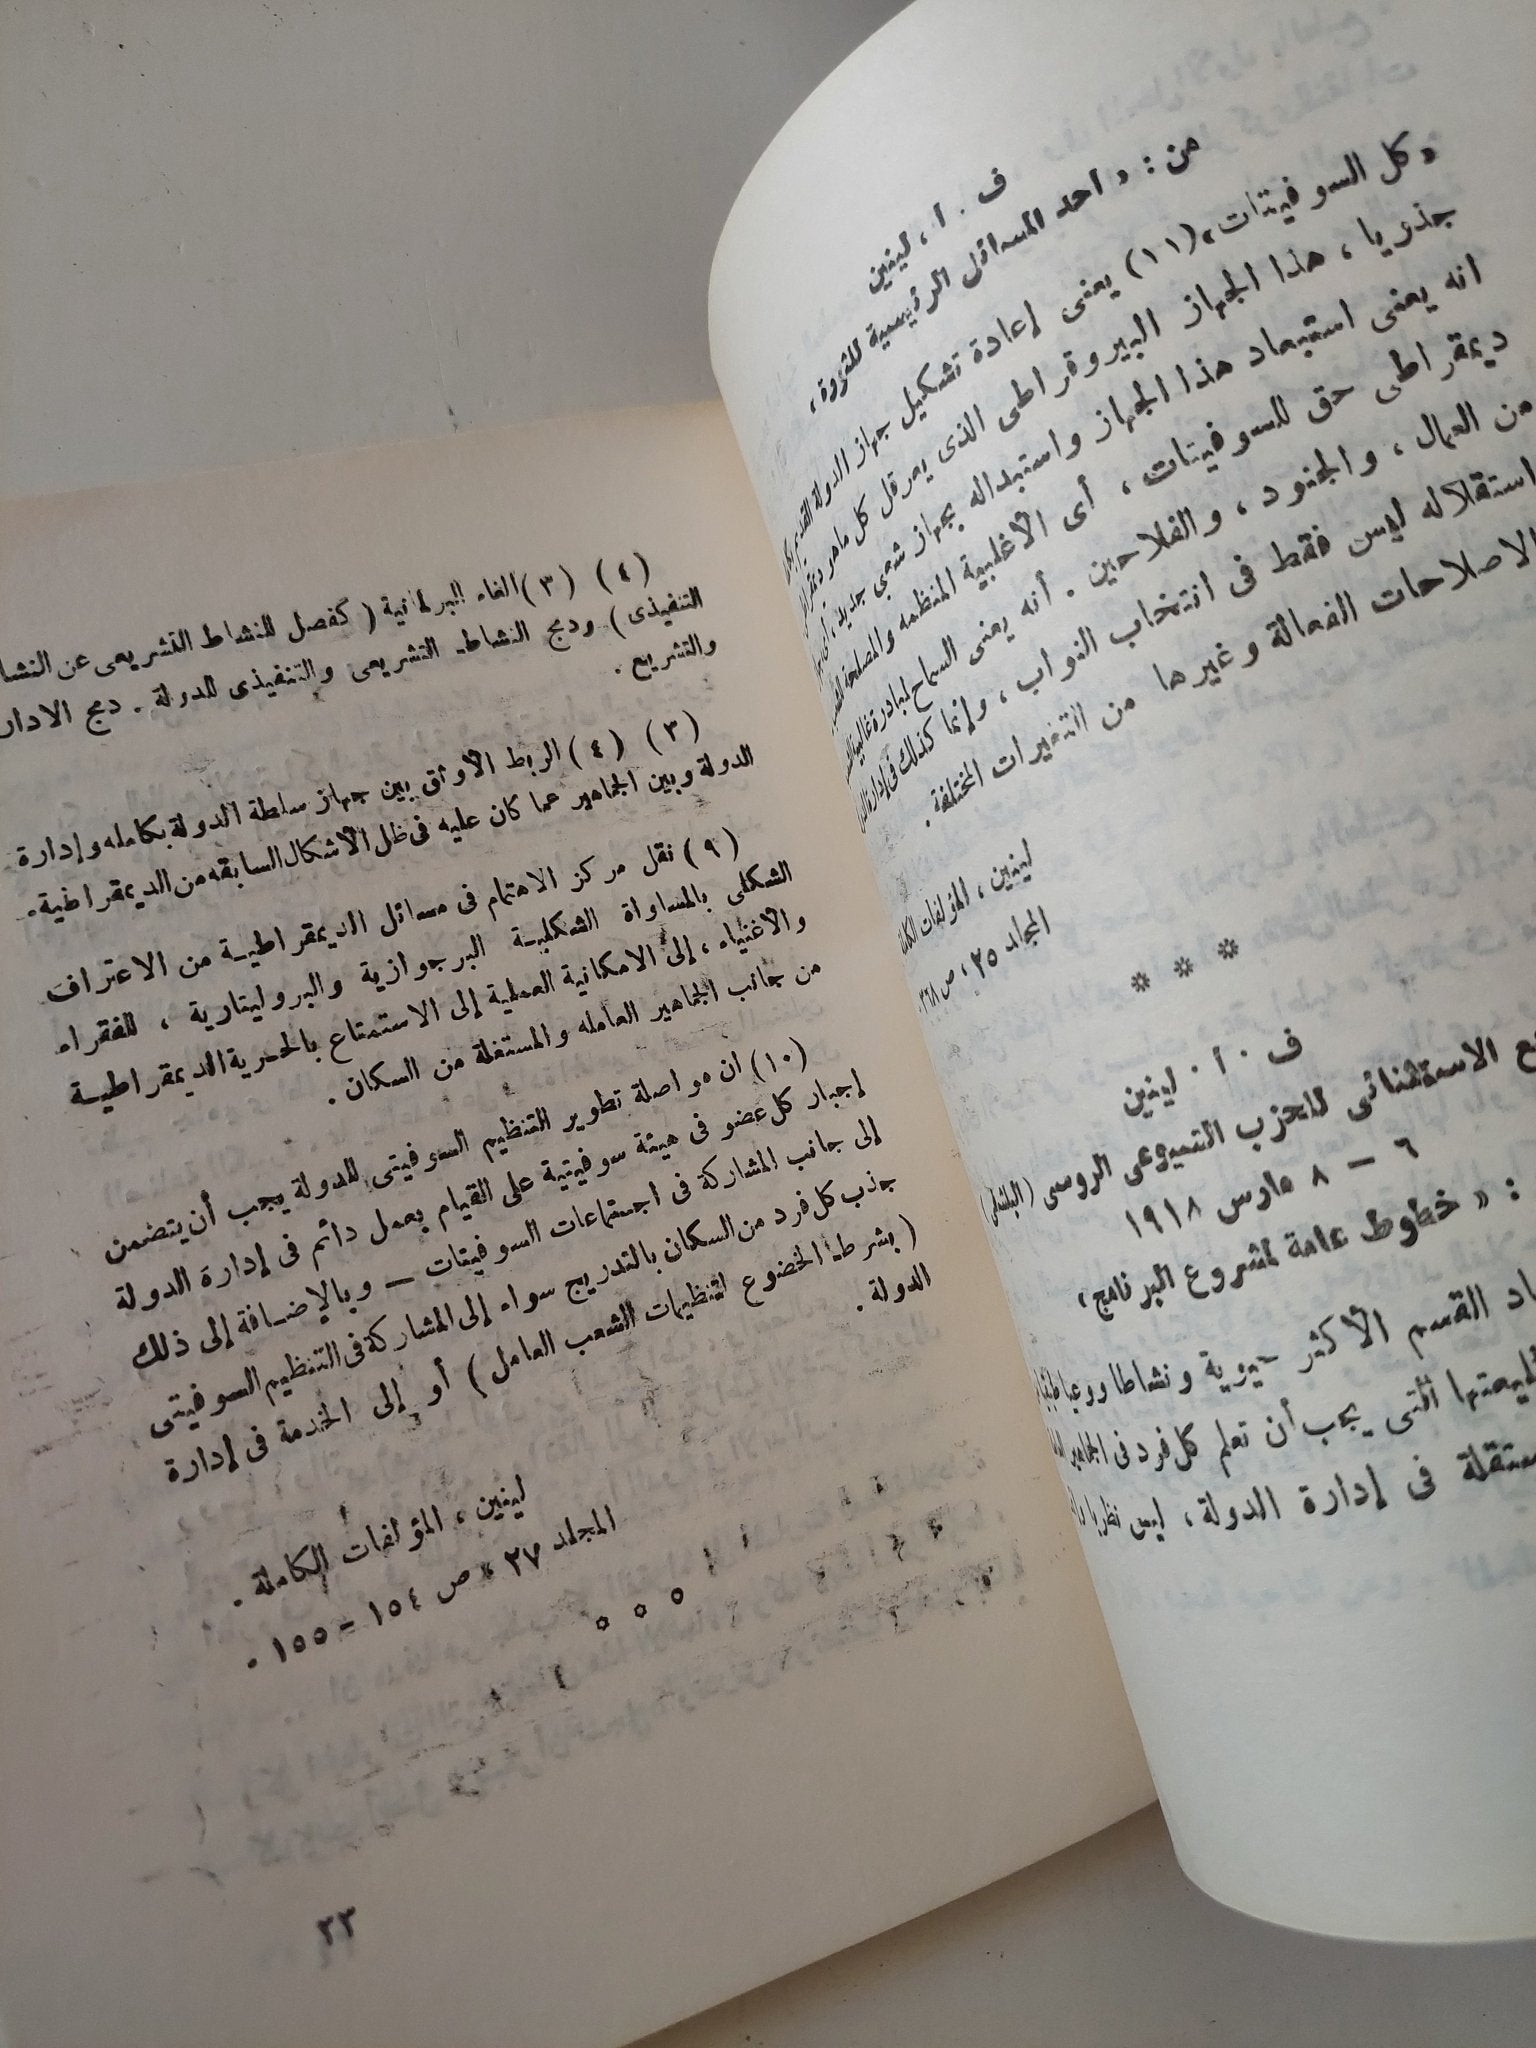 ف . ا . لينين
من : « احد المسائل الرئيسية للثورة »
« كل السوفيتات » (١١) يعنى إعادة تشكيل جهاز الدولة القديم
جذريا ، هذا الجهاز البيروقراطى الذى يعرقل كل ماهو
انه يعنى استبعاد هذا الجهاز واستبداله بجهاز شعبى جديد ، أى
ديمقراطى حق للسوفيتات ، أى الأغلبية المنظمه والمسلحة
من العمال ، والجنود ، والفلاحين . أنه يعنى السماح لمبادرة غالبية
استقلاله ليس فقط فى انتخاب النواب ، وإنما كذلك فى إدارة
الاصلاحات الفعالة وغيرها من التغيرات المختلفة .
لينين ، المؤلفات
المجلد ٢٥ ، ص ٣٦٨ .
* * *
ف . أ . لينين
الاستثنائى للحزب الشيوعى الروسى (البلشفى)
٦ – ٨ مارس ١٩١٨
: « خطوط عامة لمشروع البرنامج »
القسم الأكثر حيوية ونشاطا ووعيا
التى يجب أن تعلم كل فرد فى الجماهير
فى إدارة الدولة ، ليس نظريا
(٤) (٣) الغاء البرلمانية (كفصل للنشاط التشريعى عن
التنفيذى) ودمج النشاط التشريعى والتنفيذى للدولة . دمج
والتشريع .
(٣) (٤) الربط الأوثق بين جهاز سلطة الدولة بكامله وإدارة
الدولة وبين الجماهير عما كان عليه فى ظل الأشكال السابقه من الديمقراطية .
(٩) نقل مركز الاهتمام فى مسائل الديمقراطية من الاعتراف
الشكلى بالمساواة الشكلية البرجوازية والبروليتارية ، للفقراء
والأغنياء ، إلى الامكانية العملية إلى الاستمتاع بالحرية الديمقراطية
من جانب الجماهير العامله والمستغلة من السكان .
(١٠) ان مواصلة تطوير التنظيم السوفيتى للدولة يجب أن يتضمن
إجبار كل عضو فى هيئة سوفيتية على القيام بعمل دائم فى إدارة الدولة
إلى جانب المشاركة فى اجتماعات السوفيتات – وبالإضافة إلى ذلك
جذب كل فرد من السكان بالتدريج سواء إلى المشاركة فى التنظيم السوفيتى
( بشرط الخضوع لتنظيمات الشعب العامل ) أو إلى الخدمة فى إدارة
الدولة .
لينين ، المؤلفات الكاملة .
المجلد ٢٧ ، ص ١٥٤ – ١٥٥ .
* * *
٢٣